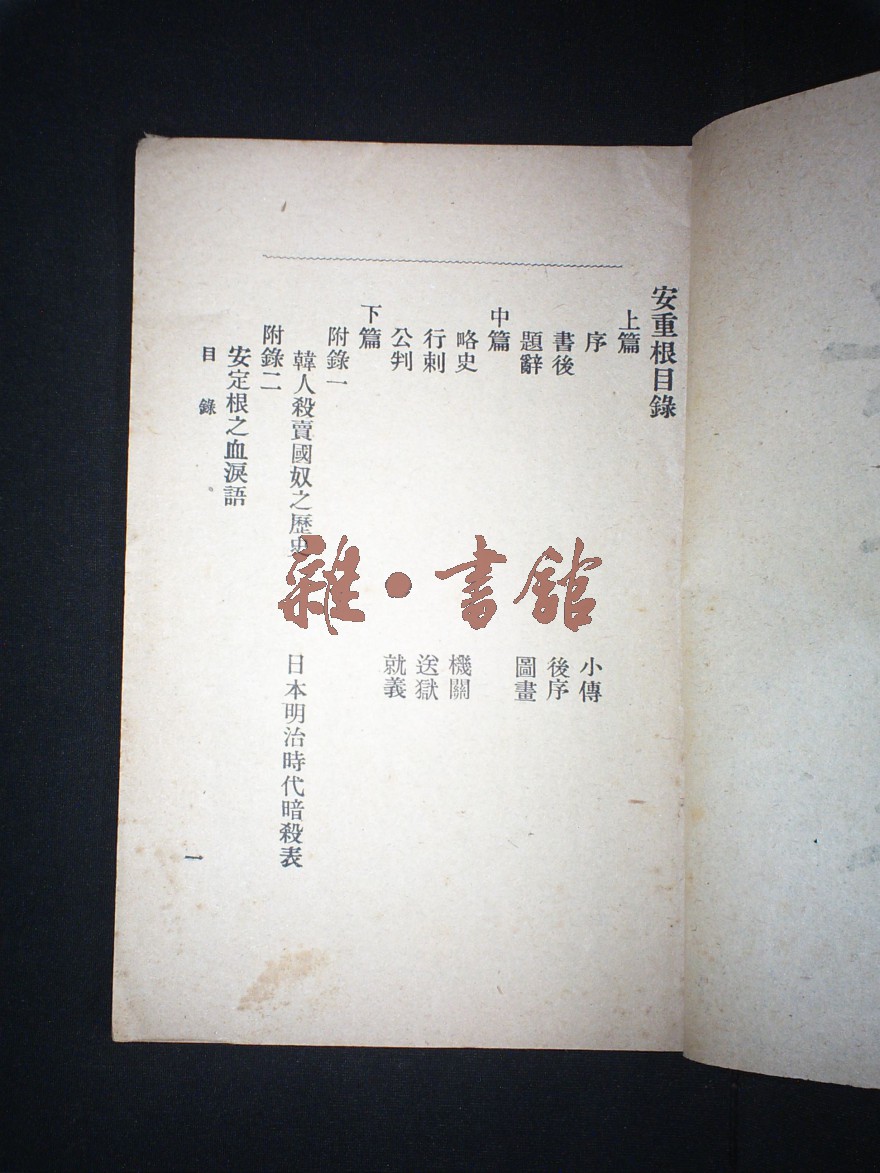 安重根目錄
上篇
序 小傳
書後 後序
題辭 圖畫
中篇
略史 機關
行刺 送獄
公判 就義
下篇
附錄一
韓人殺賣國奴之歷史 日本明治時代暗殺表
附錄二
安定根之血淚語
目錄
一
雜·書館